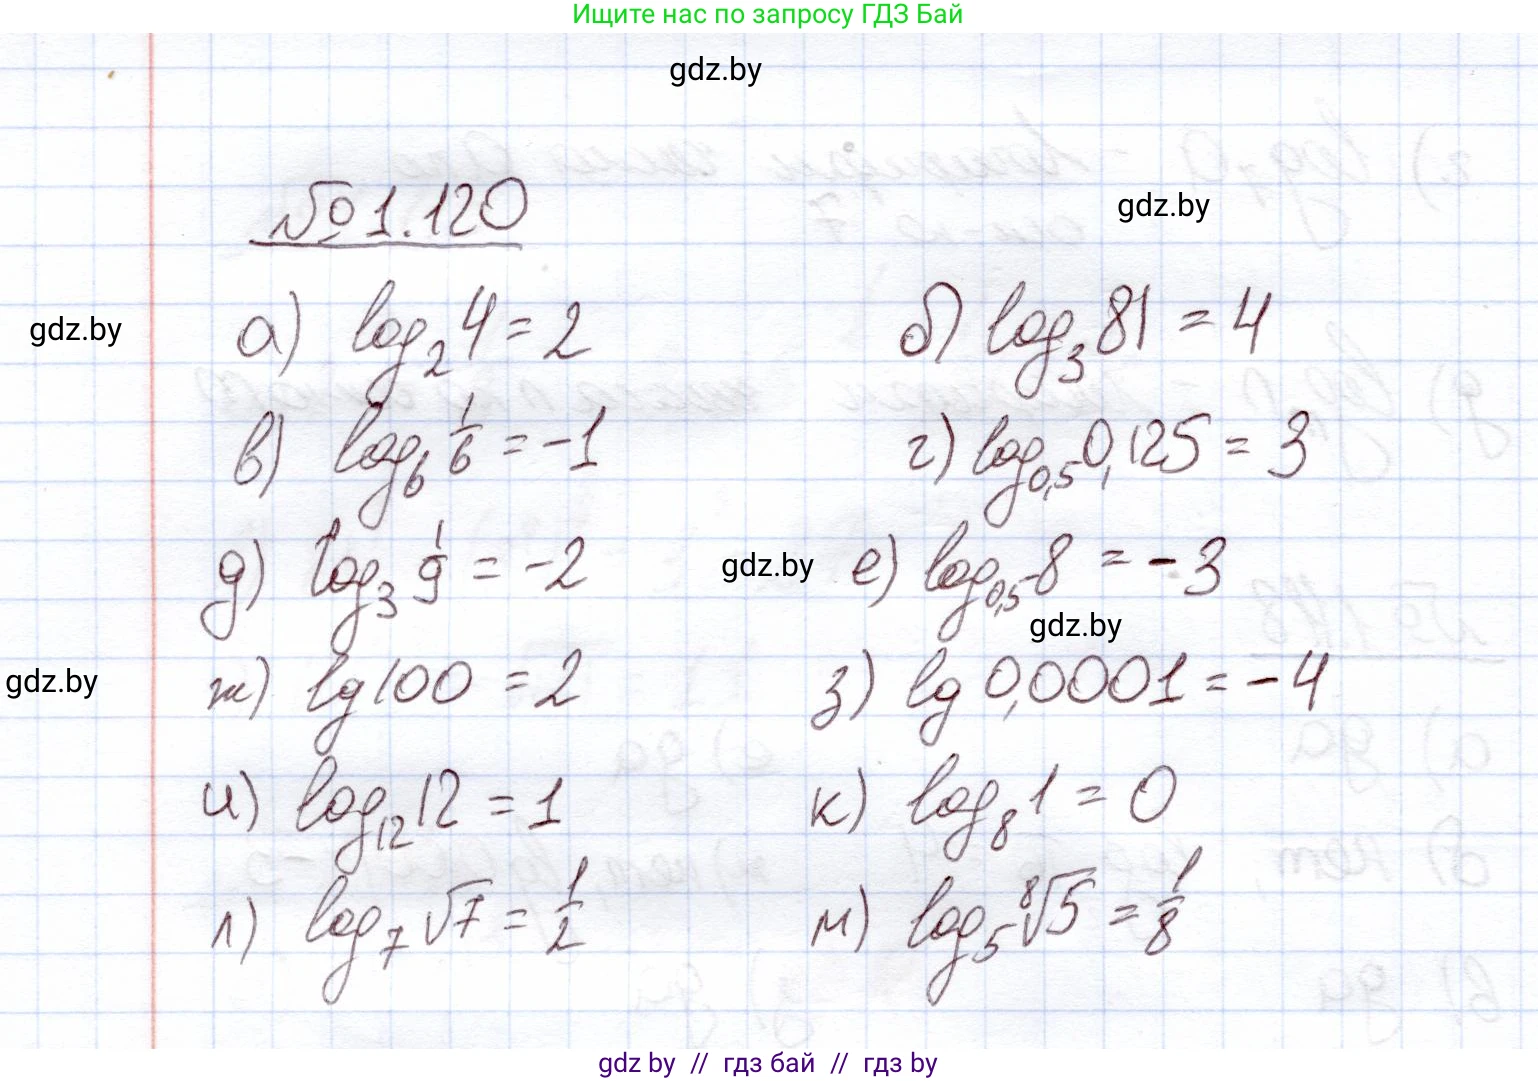 Ищите нас по запросу ГДЗ Бай
gdz.by
№1.120
gdz.by
а) log₂4 = 2 б) log₃81 = 4
gdz.by
в) log₆ 1/6 = -1 г) log₀,₅0,125 = 3
д) log₃ 1/9 = -2 gdz.by е) log₀,₅8 = -3
gdz.by
ж) lg100 = 2 з) lg 0,0001 = -4
gdz.by
и) log₁₂12 = 1 к) log₈1 = 0
л) log₇√7 = 1/2 м) log₅⁸√5 = 1/8
gdz.by // гдз бай // гдз by